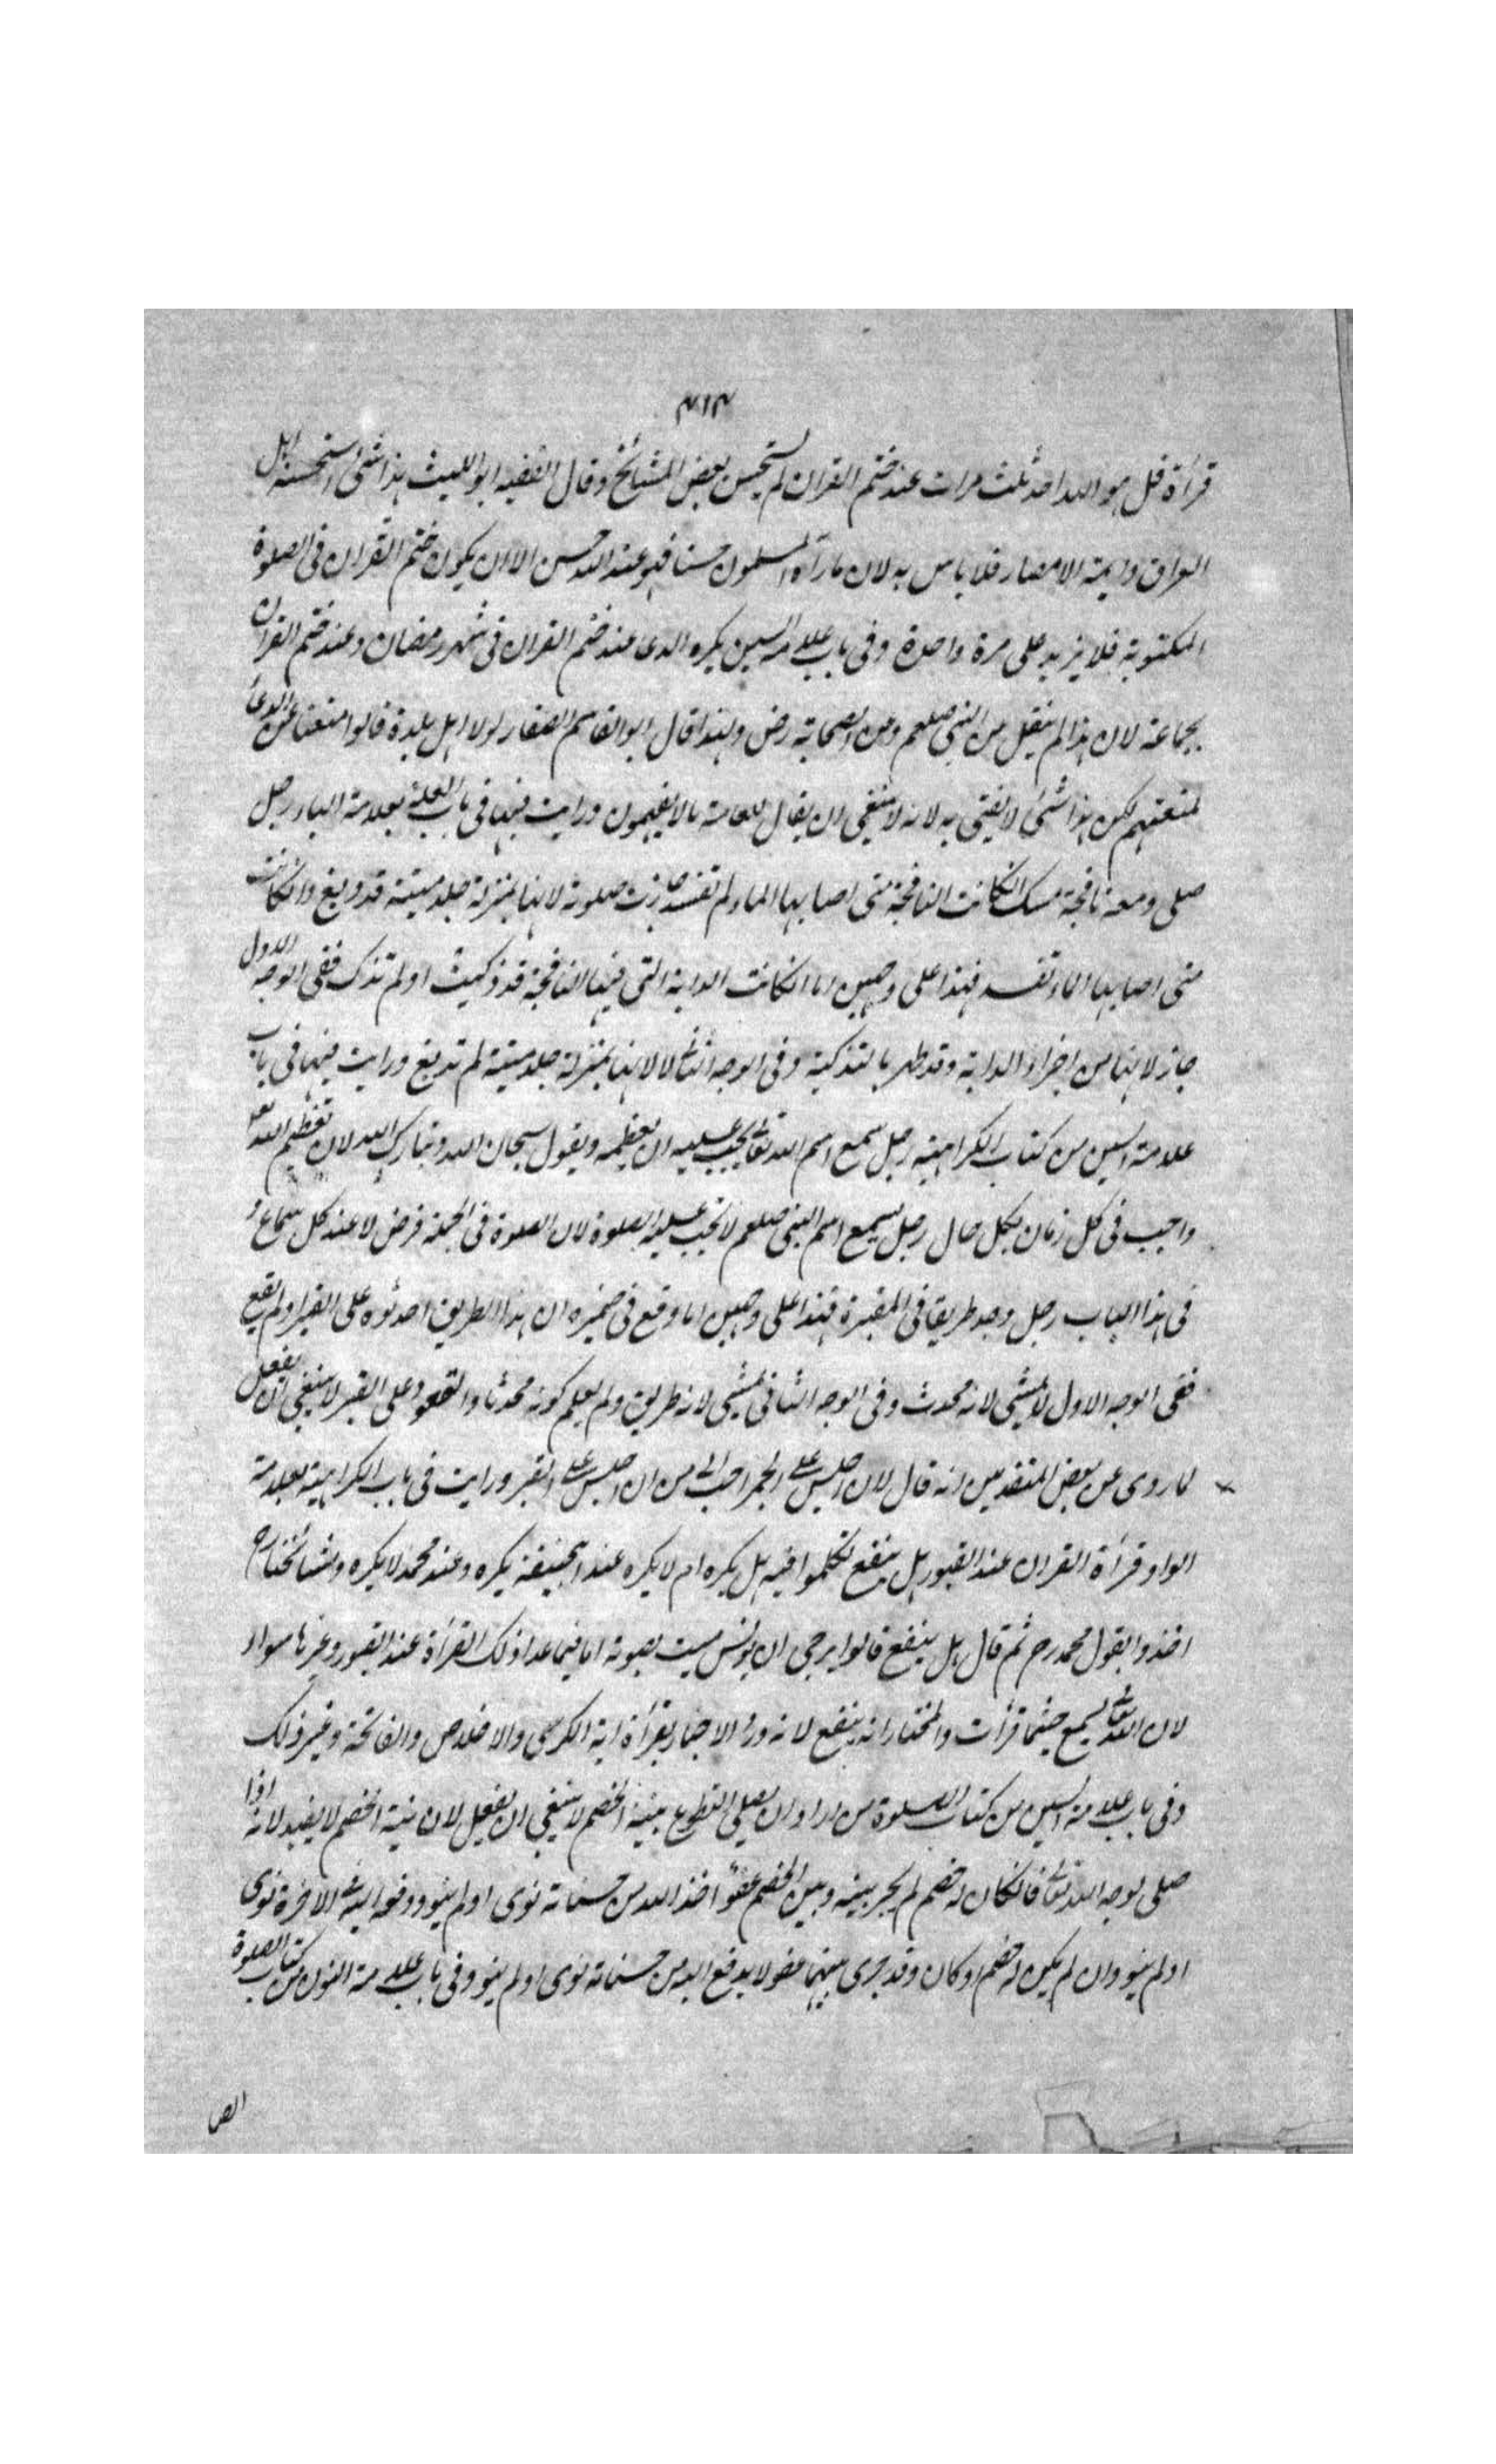 ۳۱۳
قرأة قل هو الله احد ثلث مرات عند ختم القران لم يستحسن بعض المشائخ وقال الفقيه ابو الليث هذا شئ استحسنه اهل
العراق وايمة الامصار فلا باس به لان ما رآه المسلمون حسنا فهو عند الله حسن الا ان يكون ختم القران فى الصلوة
المكتوبة فلا يزيد على مرة واحدة وفى باب علامة السين يكره الدعا عند ختم القران فى شهر رمضان وعند ختم القران
بجماعة لان هذا لم ينقل من النبى صلعم ومن الصحابة رض ولهذا قال ابو القاسم الصفار لولا اهل بلدة قالوا منعنا عن الدعأ
لمنعتهم لكن هذا شئ لا يفتى به لانه لا ينبغى ان يقال للعامة مالا يفهمون ورايت فيها فى باب الصلوة بعلامة الباء رجل
صلى ومعه نافجة مسك انكانت النافجة متى اصابها الماء لم تفسد جازت صلوته لانها بمنزلة جلد ميتة قد دبغ وانكانت
متى اصابها الماء تفسد فهذا على وجهين اما انكانت الدابة التى فيها النافجة قد ذكيت او لم تذك ففى الوجه الاول
جاز لانها من اجزاء الدابة وقد طهر بالتذكية وفى الوجه الثانى لا لانها بمنزلة جلد ميتة لم تدبغ ورايت فيها فى باب
علامة السين من كتاب الكراهية رجل سمع اسم الله تعالى يجب عليه ان يعظمه ويقول سبحان الله وتبارك الله لان تعظيم الله تع
واجب فى كل زمان بكل حال رجل يسمع اسم النبى صلعم لا تجب عليه الصلوة لان الصلوة فى الجملة فرض لا عند كل سماع و
فى هذا الباب رجل وجد طريقا فى المقبرة فهذا على وجهين اما وقع فى ضميره ان هذا الطريق احدثوه على القبر او لم يقع
ففى الوجه الاول لا يمشى لانه محدث وفى الوجه الثانى يمشى لانه طريق ولم يعلم كونه محدثا والقعود على القبر لا ينبغى ان يفعل
لما روى عن بعض المتقدمين انه قال لان اجلس على الجمر احب الى من ان اجلس على القبر ورايت فى باب الكراهية بعلامة
الواو قرأة القران عند القبور هل ينفع تكلموا فيه هل يكره ام لا يكره عند ابيحنيفة يكره وعند محمد لا يكره ومشائخنا رح
اخذوا بقول محمد رح ثم قال هل ينفع قالوا يرجى ان يونس ميت بصوته اما فيما عدا ذلك القرأة عند القبور وغيرها سواء
لان الله تعالى يسمع حيثما قرأت والمختار انه ينفع لانه ورد الاخبار بقرأة اية الكرسى والاخلاص والفاتحة وغير ذلك
وفى باب علامة السين من كتاب الصلوة من اراد ان يصلى التطوع بنية الخصم لا ينبغى ان يفعل لان نية الخصم لا يفيد لانه اذا
صلى لوجه الله تعالى فانكان له خصم لم يجر بينه وبين الخصم عفو اخذ الله من حسناته نوى او لم ينو ودفع اليه الاخرة نوى
او لم ينو وان لم يكن له خصم او كان وقد جرى بينهما عفو لا يدفع اليه من حسناته نوى او لم ينو وفى باب علامة النون من كتاب الصلوة
الص